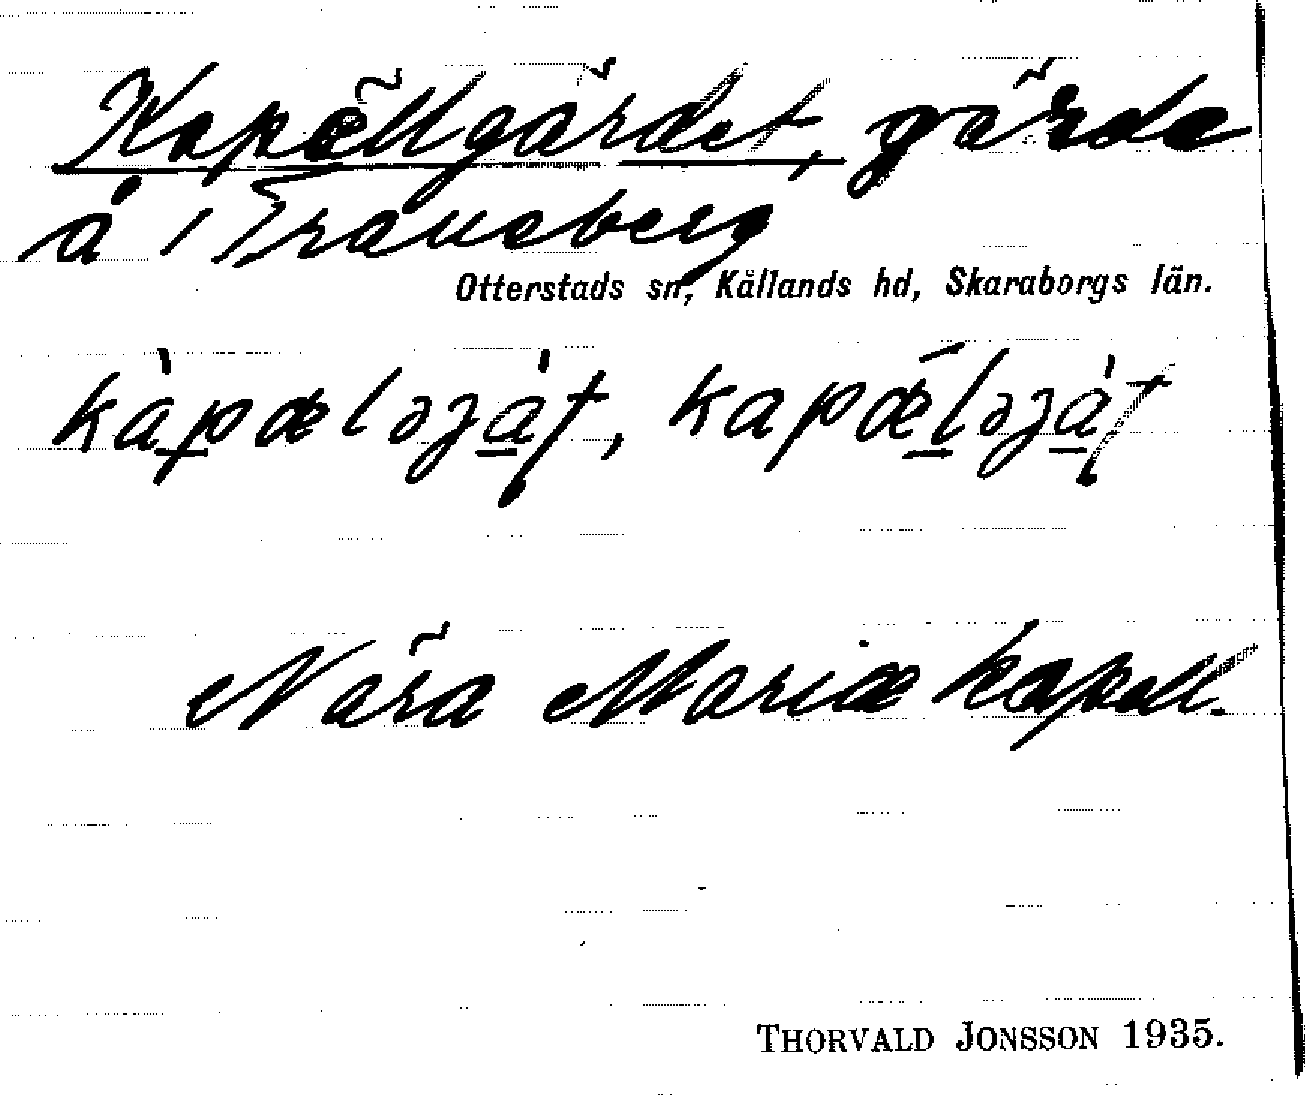 Kapellgärdet, gärde
å 1 Traneberg
Otterstads sn, Kållands hd, Skaraborgs län.
kàpæləjat, kapǽləjat
Nära Mariæ kapell.
THORVALD JONSSON 1935.